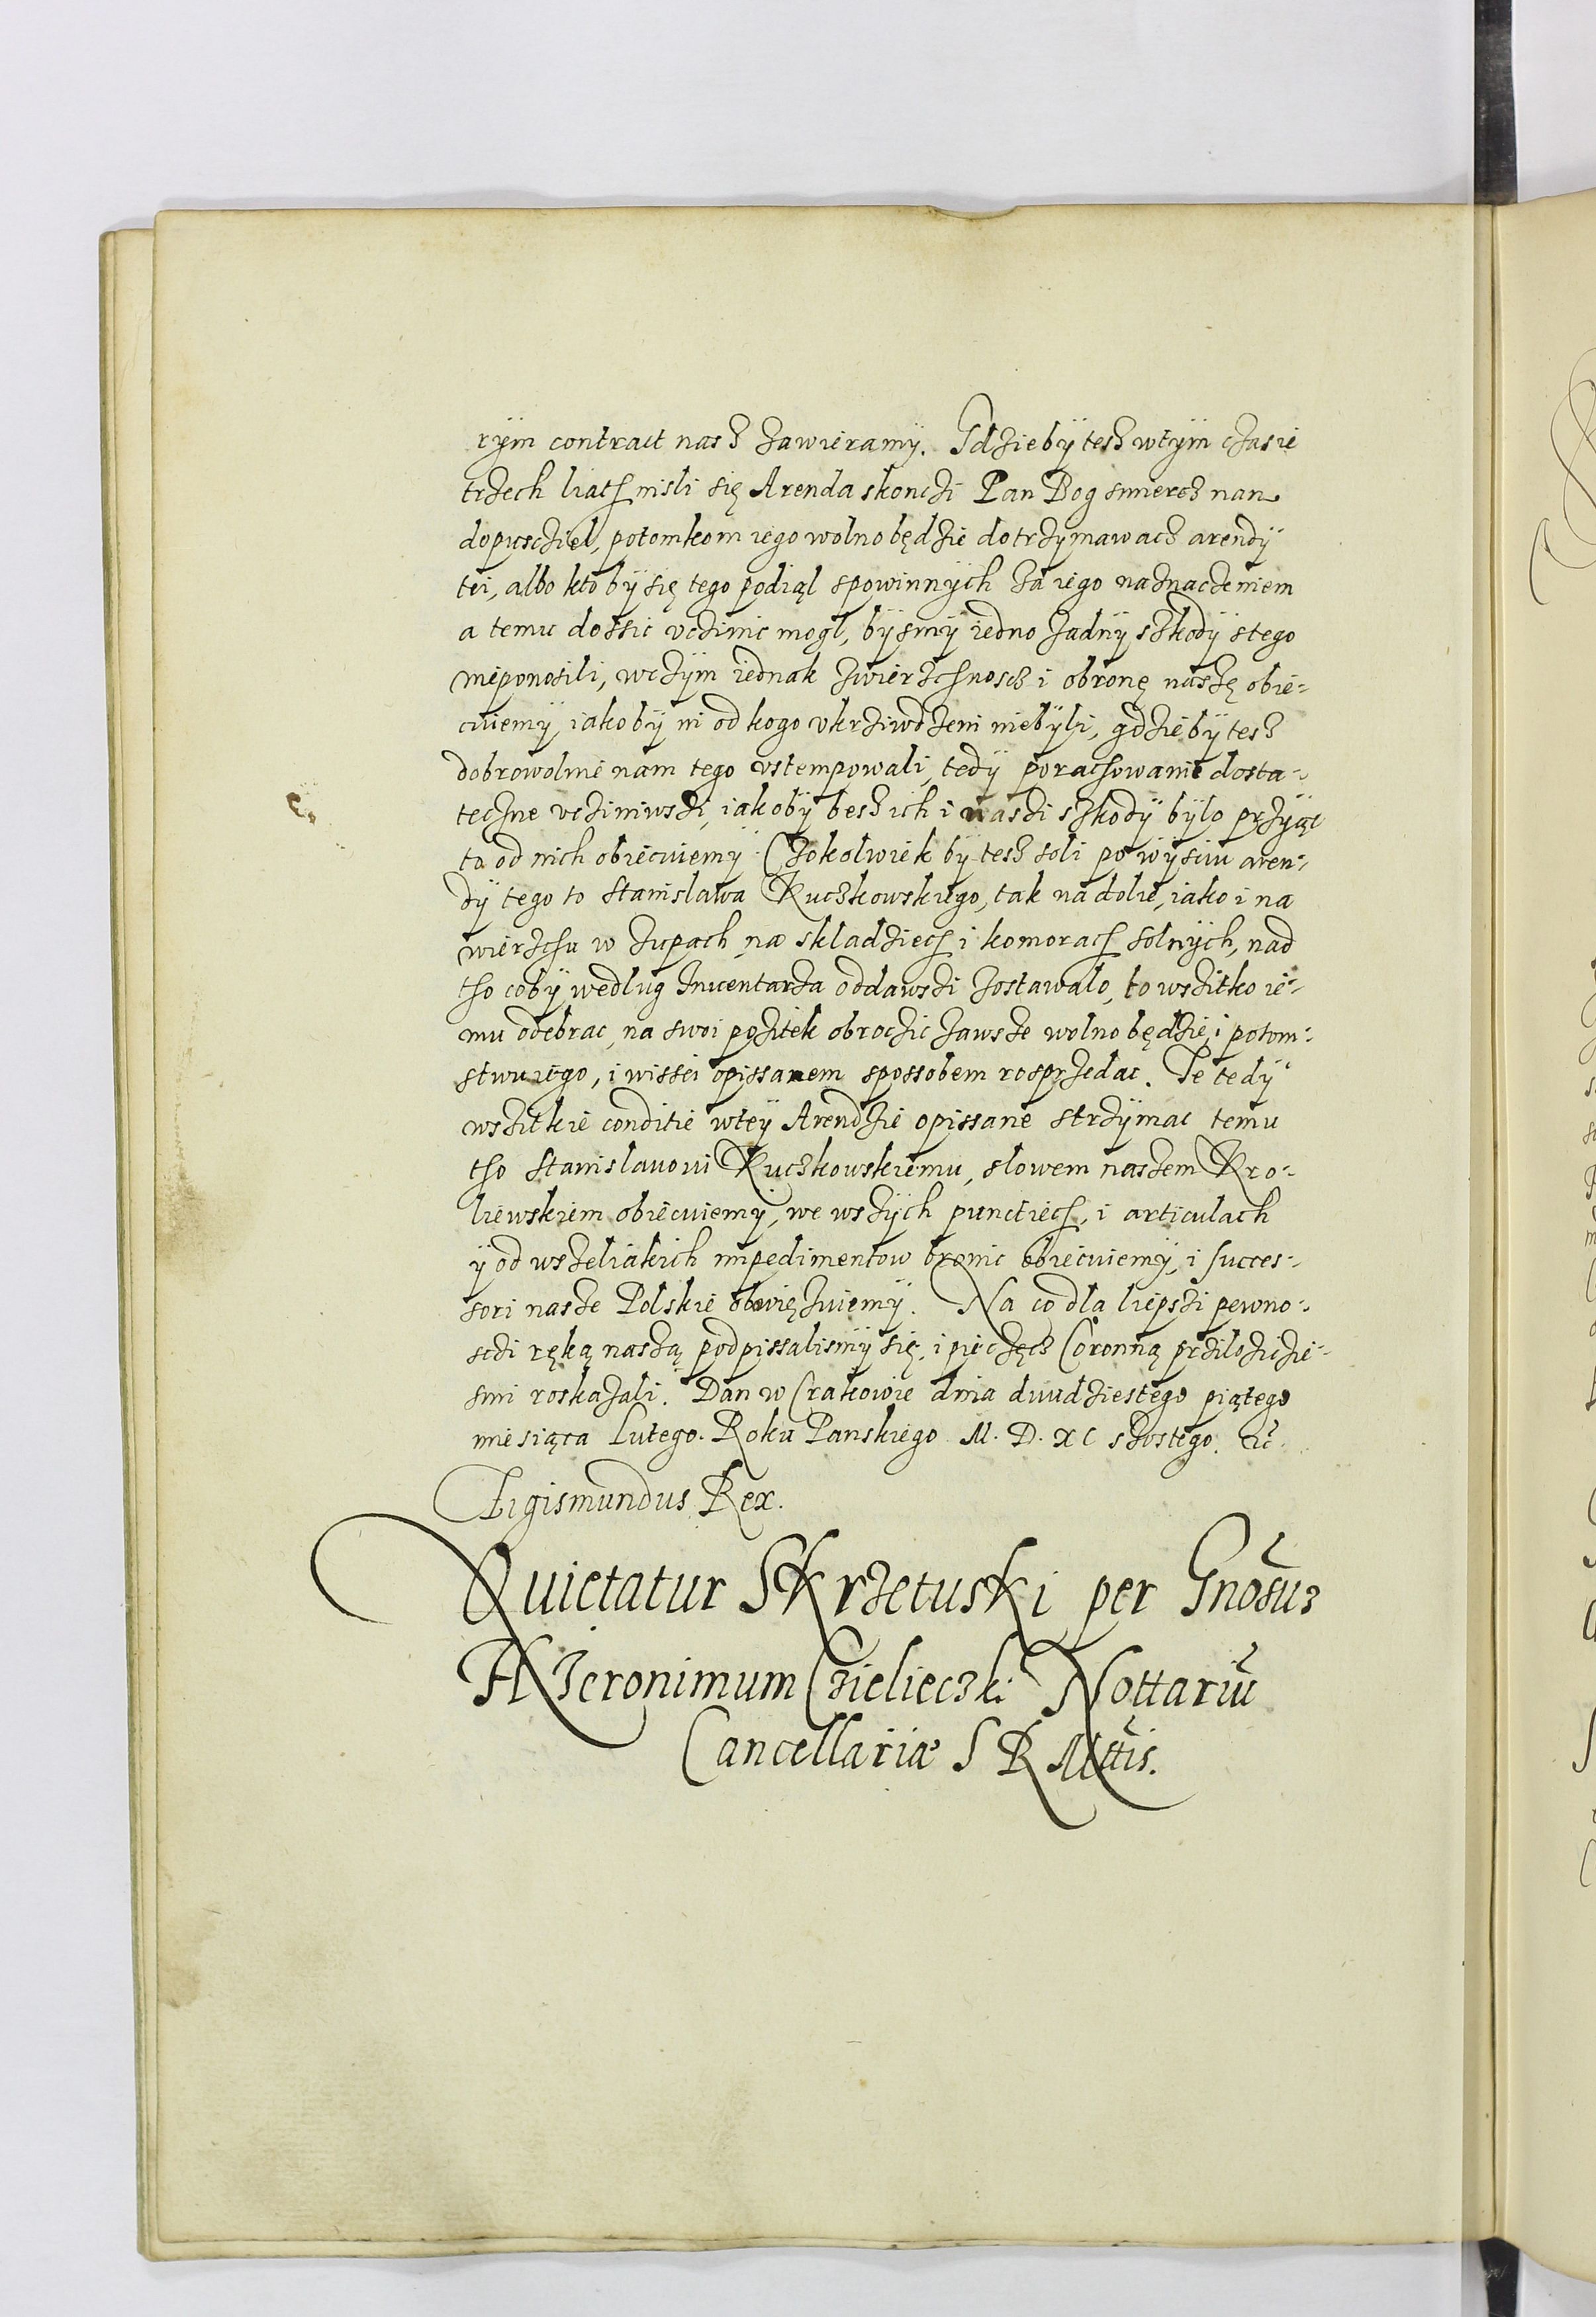 rÿm contract nasz zawieramÿ. Gdziebÿ tesz wtÿm czasie
trzech liath nisli się Arenda skonczi Pan Bog smiercz nan
dopusczieł, potomkom iego wolno będzie dotrzÿmawacz arendÿ
tei, albo kto bÿ się tego podiął spowinnÿch za iego naznaczeniem
a temu dossic vczinic mogł, bÿsmÿ iedno żadnÿ szkodÿ stego
nieponosili, wczÿm iednak zwierzchnoscz i obronę naszę obie-
cuiemÿ, iakobÿ ni od kogo vkrziwdzeni niebÿli, gdziebÿ tesz
dobrowolnie nam tego vstempowali, tedÿ porachowanie dosta-
teczne vcziniwszi, iakobÿ besz ich i naszi szkodÿ bÿlo przÿiąc
to od nich obiecuiemÿ. Czokolwiek bÿ tesz soli po wÿsciu aren-
dÿ tego to Stanislawa Ruczkowskiego, tak na dolie, iako i na
wierzchu w zupach, na składziech i komorach solnÿch, nad
tho cobÿ wedlug Inuentarza oddawszi zostawało, to wszitko ie-
mu odebrac, na swoi pozitek obroczic zawsze wolno będzie, i potom-
stwu iego, i wissei opissanem spossobem rosprzedac. Te tedÿ
wszitkie conditie wteÿ Arendzie opissane strzÿmac temu
tho Stanislauowi Ruczkowskiemu, slowem naszem Kro-
liewskiem obiecuiemÿ, we wszÿch punctiech, i articulach
ÿ od wszeliakich impedimentow bronic obiecuiemÿ, i succes-
sori nasze Polskie obwięzuiemÿ. Na co dla liepszi pewno-
sczi ręką naszą podpissalismÿ się, i pieczęcz Coronną prziloziczie-
smi roskazali. Dan w Crakowie dnia dwudziestego piątego
miesiąca Lutego. Roku Panskiego M. D. XC szostego. etc.
Sigismundus Rex.
Quietatur Skrzetuski per Gnosũ
Hieronimum Czielieczki Nottariũ
Cancellariæ S R Mttis.